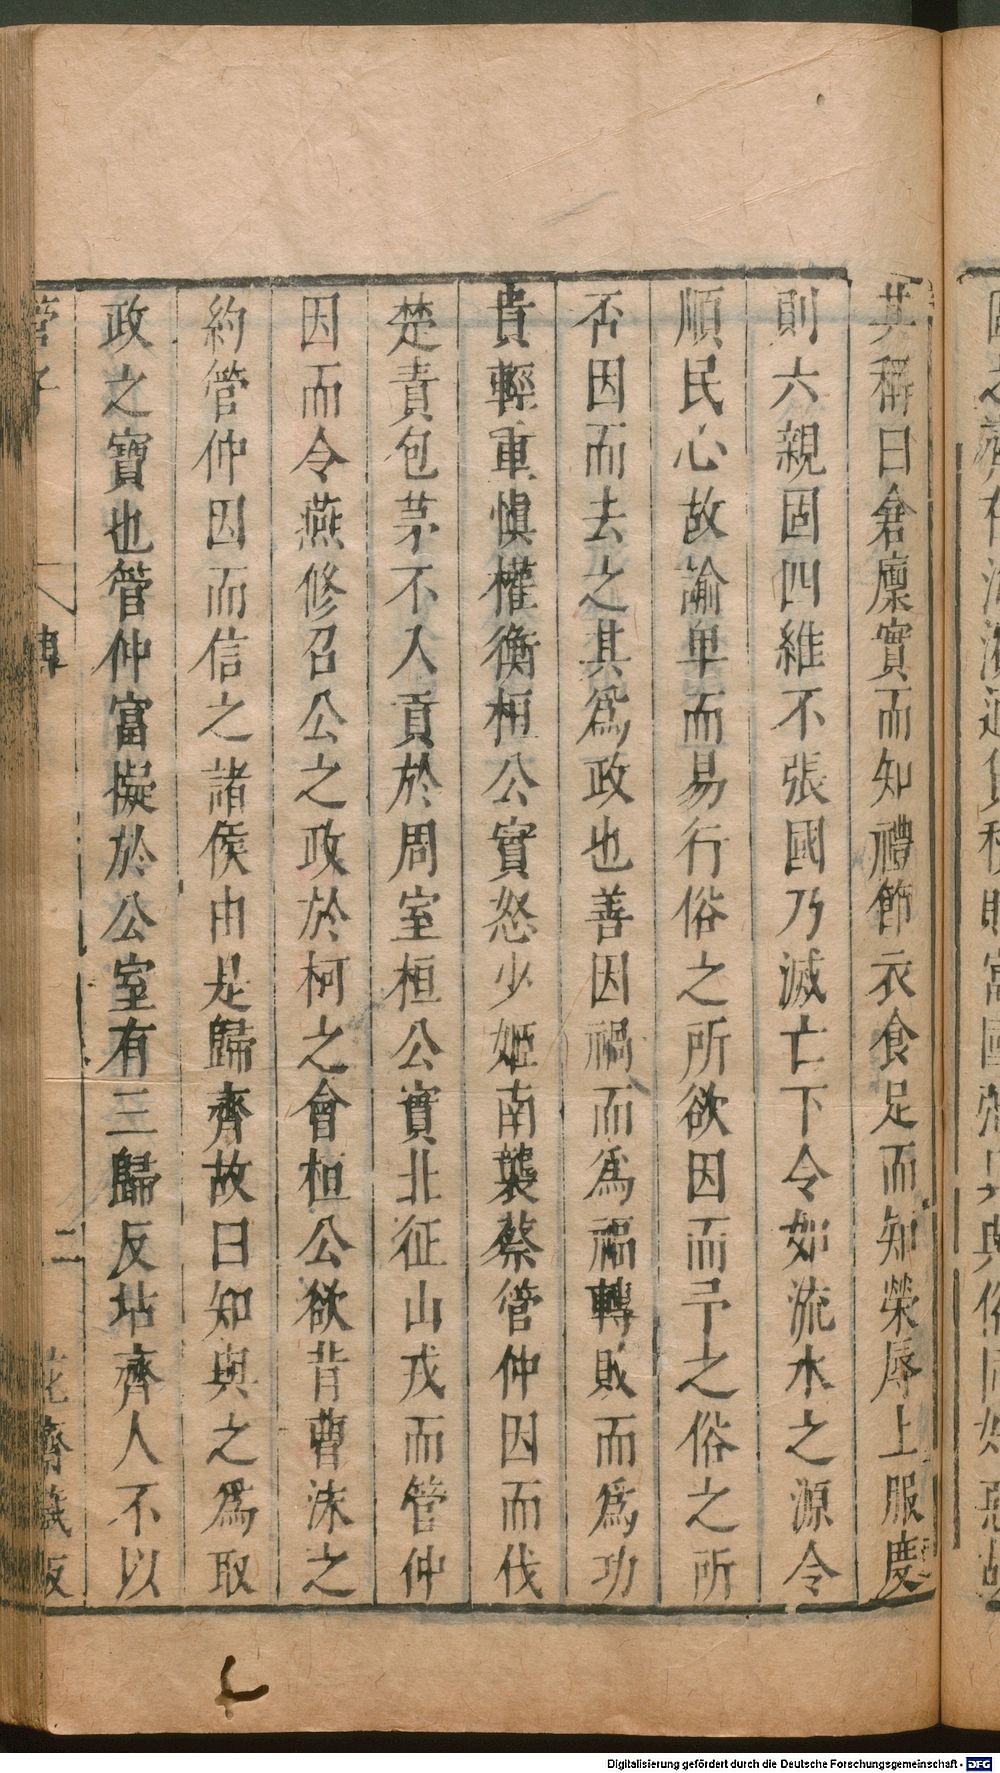 其稱曰倉廩實而知禮節衣食足而知榮辱上服慶
則六親固四維不張國乃滅亡下令如流水之源令
順民心故論卑而易行俗之所欲因而予之俗之所
否因而去之其爲政也善因禍而爲福轉敗而爲功
貴輕重慎權衡桓公實怒少姬南襲蔡管仲因而伐
楚責包茅不入貢於周室桓公實北征山戎而管仲
因而令燕修召公之政於柯之會桓公欲背曹沫之
約管仲因而信之諸侯由是歸齊故曰知與之爲取
政之寶也管仲富擬於公室有三歸反坫齊人不以
管子 傳 二 花齋藏板
Digitalisierung gefördert durch die Deutsche Forschungsgemeinschaft - DFG